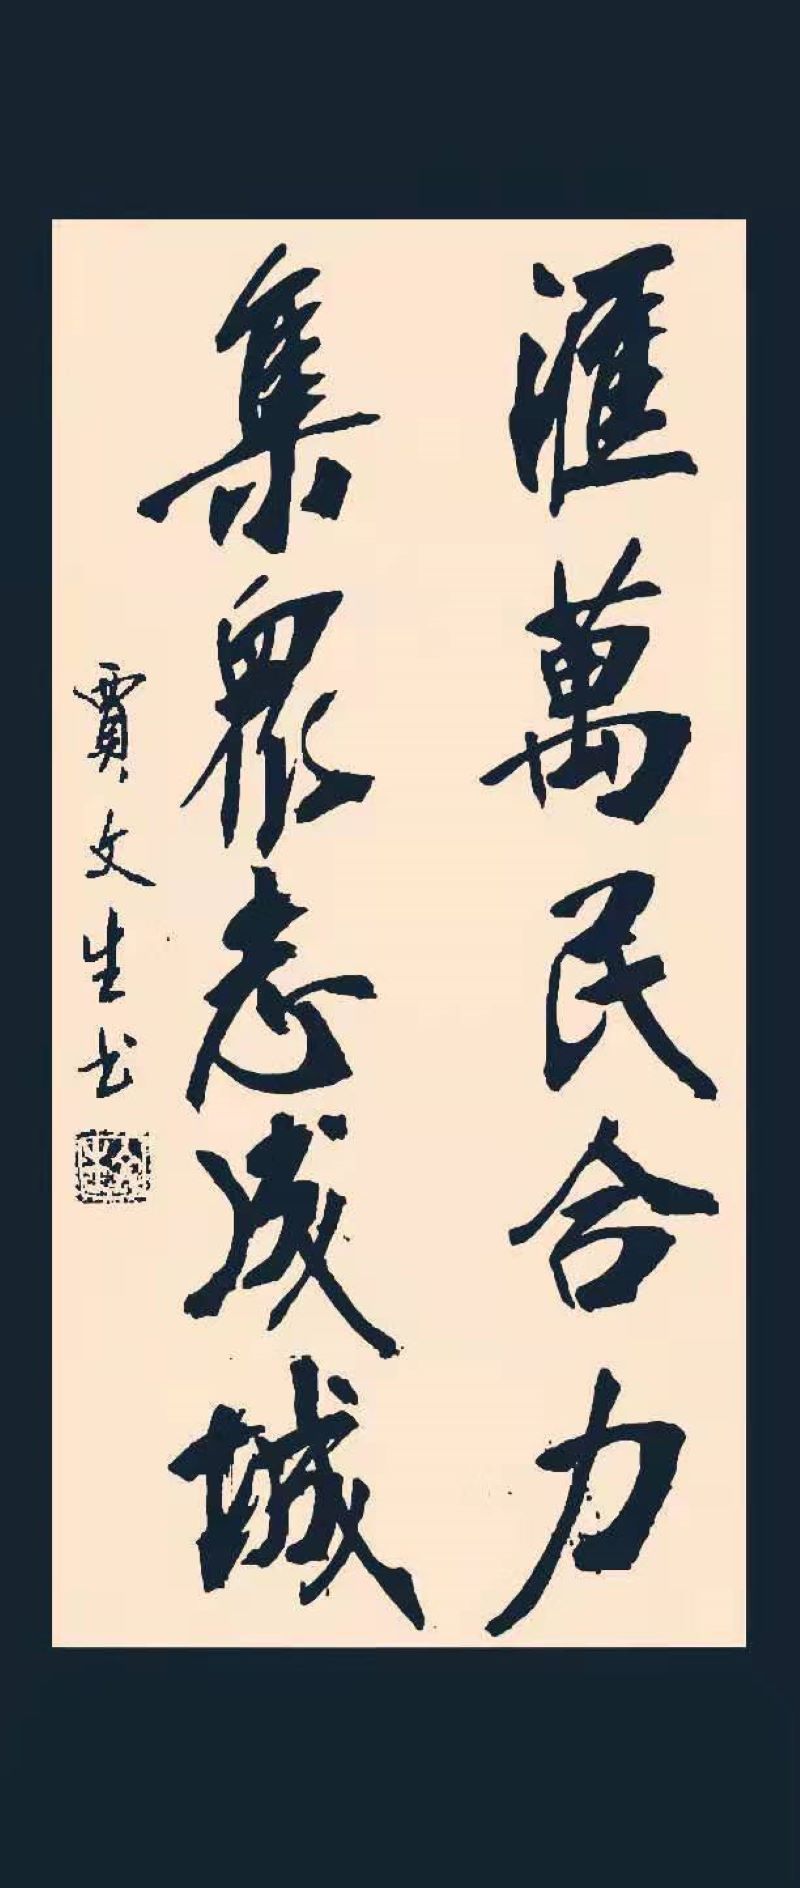 匯萬民合力
集眾志成城
賈文生书